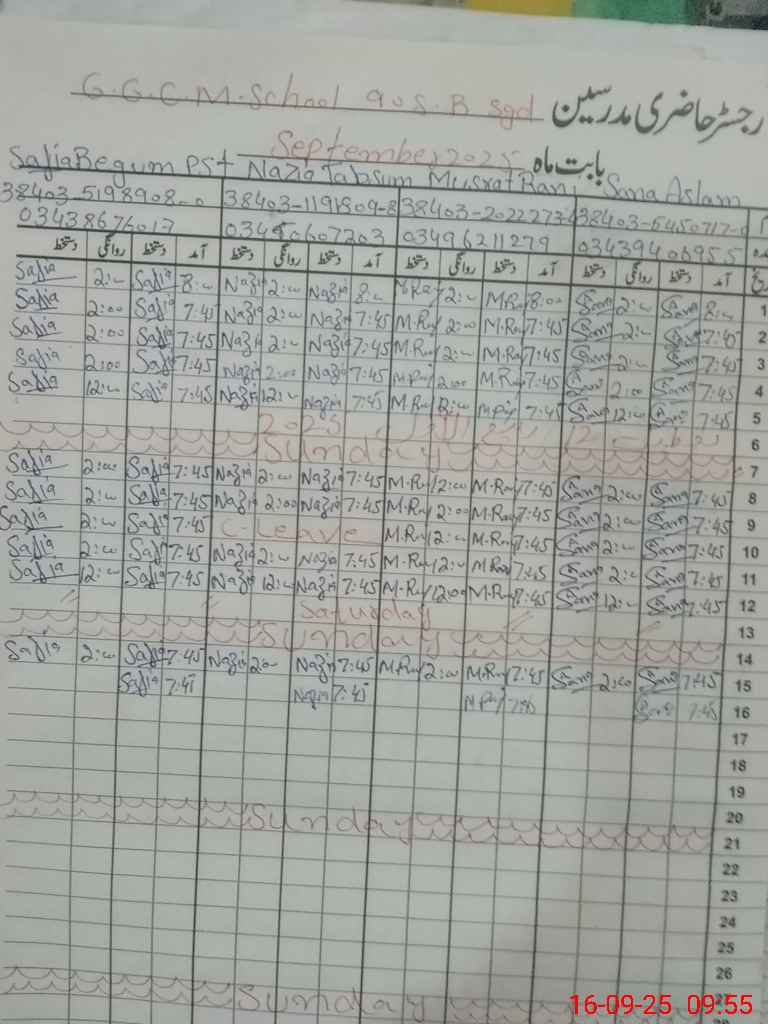 G.G.C.M. School 90 S.B sgd رجسٹر حاضری مدرسین
September 2025 بابت ماہ
Safia Begum PST Nazia Tabsum Musrat Rani Sana Aslam
38403-5198908-0 38403-1191809-8 38403-2022273- 38403-6450717-
03438676017 03496211279 03439406955
دستخط روانگی دستخط آمد دستخط روانگی دستخط آمد دستخط روانگی دستخط آمد دستخط روانگی دستخط آمد
Safia 2:00 Safia 8:00 Nazia 2:00 Nazia 8:00 M.Raj 2:00 M.Raj 8:00 Sana 2:00 Sana 8:00 1
Safia 2:00 Safia 7:45 Nazia 2:00 Nazia 7:45 M.Raj 2:00 M.Raj 7:45 Sana 2:00 Sana 7:45 2
Safia 2:00 Safia 7:45 Nazia 2:00 Nazia 7:45 M.Raj 2:00 M.Raj 7:45 Sana 2:00 Sana 7:45 3
Safia 2:00 Safia 7:45 Nazia 2:00 Nazia 7:45 M.Raj 2:00 M.Raj 7:45 Sana 2:00 Sana 7:45 4
Safia 12:00 Safia 7:45 Nazia 12:00 Nazia 7:45 M.Raj 12:00 M.Raj 7:45 Sana 12:00 Sana 7:45 5
2025 12 6
Sunday 7
Safia 2:00 Safia 7:45 Nazia 2:00 Nazia 7:45 M.Raj 2:00 M.Raj 7:45 Sana 2:00 Sana 7:45 8
Safia 2:00 Safia 7:45 Nazia 2:00 Nazia 7:45 M.Raj 2:00 M.Raj 7:45 Sana 2:00 Sana 7:45 9
Safia 2:00 Safia 7:45 C-Leave M.Raj 2:00 M.Raj 7:45 Sana 2:00 Sana 7:45 10
Safia 2:00 Safia 7:45 Nazia 2:00 Nazia 7:45 M.Raj 2:00 M.Raj 7:45 Sana 2:00 Sana 7:45 11
Safia 12:00 Safia 7:45 Nazia 12:00 Nazia 7:45 M.Raj 12:00 M.Raj 7:45 Sana 12:00 Sana 7:45 12
Saturday 13
Sunday 14
Safia 2:00 Safia 7:45 Nazia 2:00 Nazia 7:45 M.Raj 2:00 M.Raj 7:45 Sana 2:00 Sana 7:45 15
Safia 7:45 Nazia 7:45 M.Raj 7:45 Sana 7:45 16
17
18
19
20
Sunday 21
22
23
24
25
26
Sunday 27
28
16-09-25 09:55